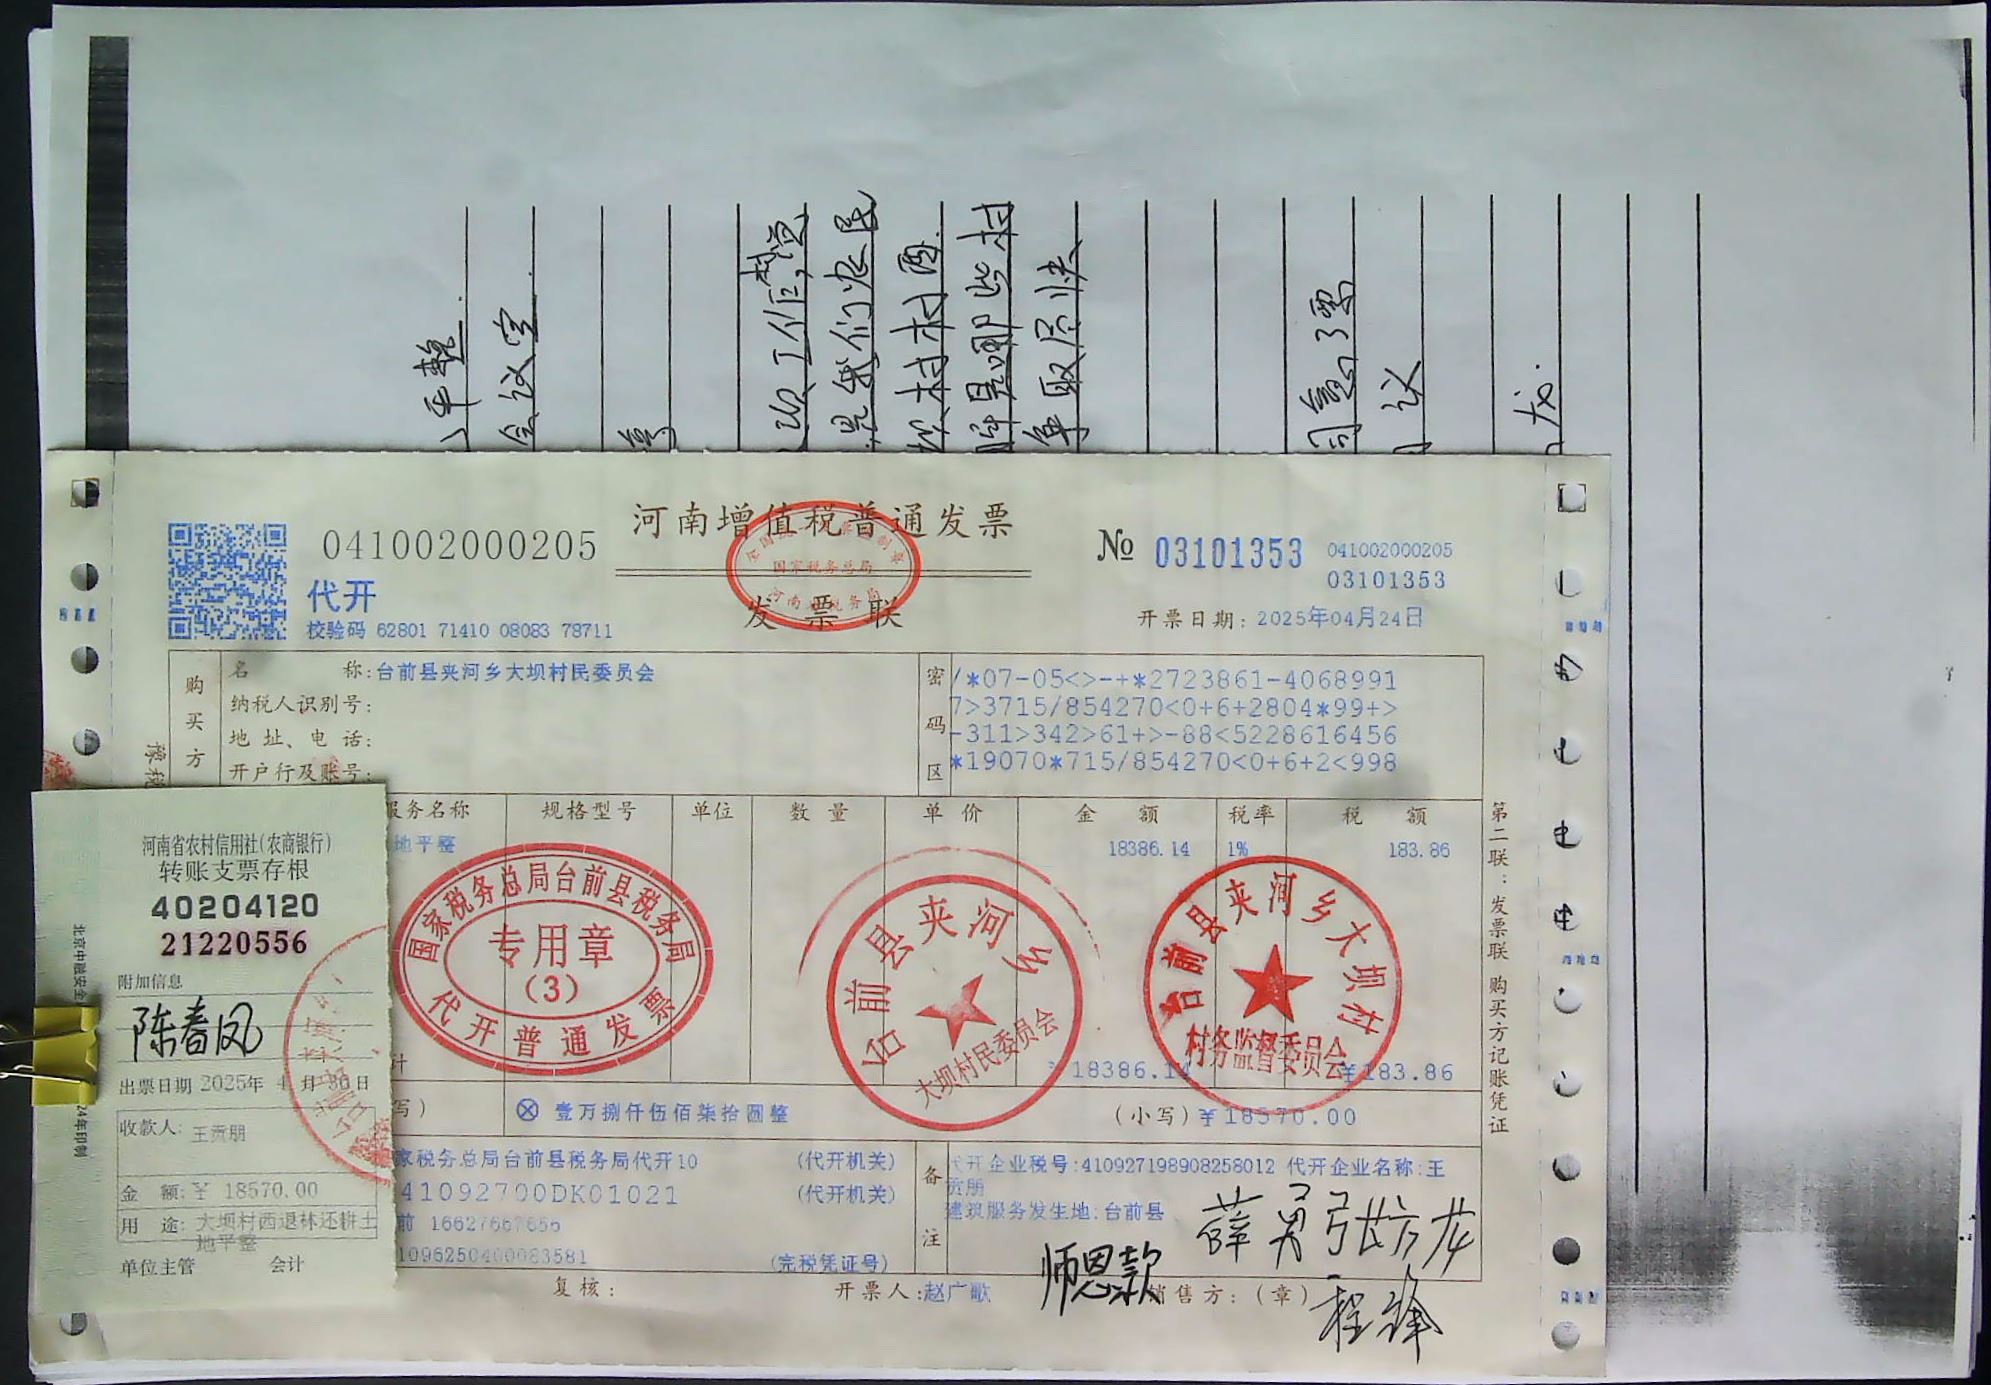 河南增值税普通发票
发票联
041002000205
代开
校验码 62801 71410 08083 78711
№ 03101353
041002000205
03101353
开票日期: 2025年04月24日
全国统一发票监制章
国家税务总局
河南省税务局
购买方
名称: 台前县夹河乡大坝村民委员会
纳税人识别号:
地址、电话:
开户行及账号:
密码区
/*07-05<>-+*2723861-4068991
7>3715/854270<0+6+2804*99+>
-311>342>61+>-88<5228616456
*19070*715/854270<0+6+2<998
服务名称 规格型号 单位 数量 单价 金额 税率 税额
地平整 18386.14 1% 183.86
国家税务总局台前县税务局
专用章
(3)
代开普通发票
台前县夹河乡
大坝村民委员会
台前县夹河乡大坝村
村务监督委员会
计 18386.14 ¥183.86
写) ⊗ 壹万捌仟伍佰柒拾圆整 (小写) ¥18570.00
家税务总局台前县税务局代开10 (代开机关)
41092700DK01021 (代开机关)
前 16627667656
1096250400083581 (完税凭证号)
备注
代开企业税号:410927198908258012 代开企业名称:王
贡朋
建筑服务发生地:台前县
薛勇强 张方龙
师恩款
程锋
复核: 开票人:赵广歌 销售方:(章)
第二联:发票联 购买方记账凭证
河南省农村信用社(农商银行)
转账支票存根
40204120
21220556
附加信息
陈春凤
出票日期 2025年 4月 30日
收款人: 王贡朋
金额: ¥ 18570.00
用途: 大坝村西退林还耕土
地平整
单位主管 会计
会议室
我们农民
村村西
那些村
争取尽快
议
龙.